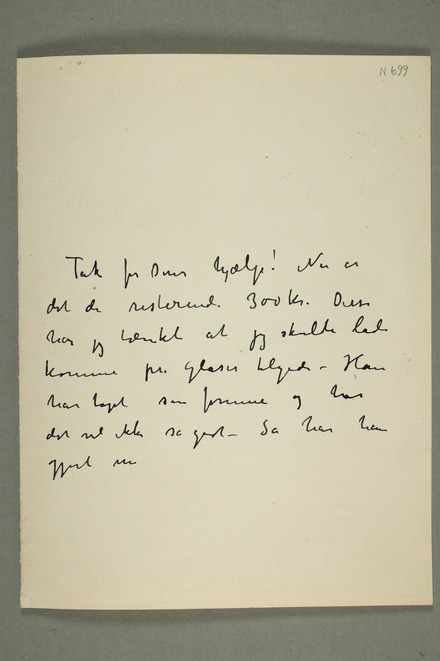 N 699
Tak for Deres hjælp! Nu er
det de resterende 300 kr. Disse
har jeg tænkt at jeg skulde lade
komme fra Glaser tilgode – Han
har tapt sin formue og har
det vel ikke så godt – Så har han
gjort